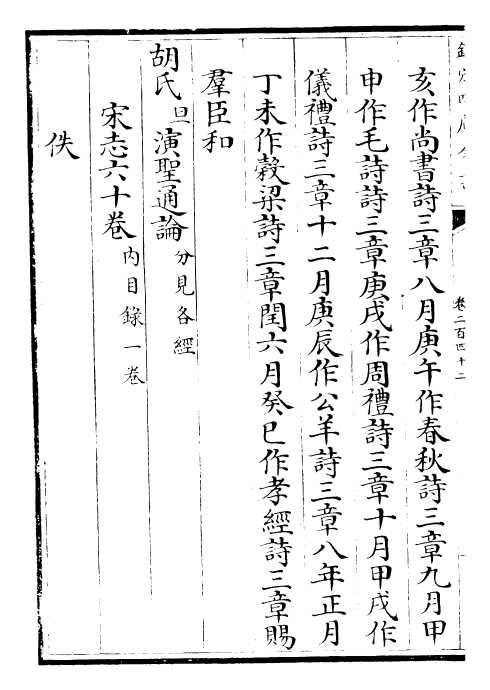 亥作尚書詩三章八月庚午作春秋詩三章九月甲
申作毛詩詩三章庚戌作周禮詩三章十月甲戌作
儀禮詩三章十二月庚辰作公羊詩三章八年正月
丁未作穀梁詩三章閏六月癸巳作孝經詩三章賜
羣臣和
胡氏旦演聖通論分見各經
宋志六十卷內目錄一卷
佚
卷二百四十二